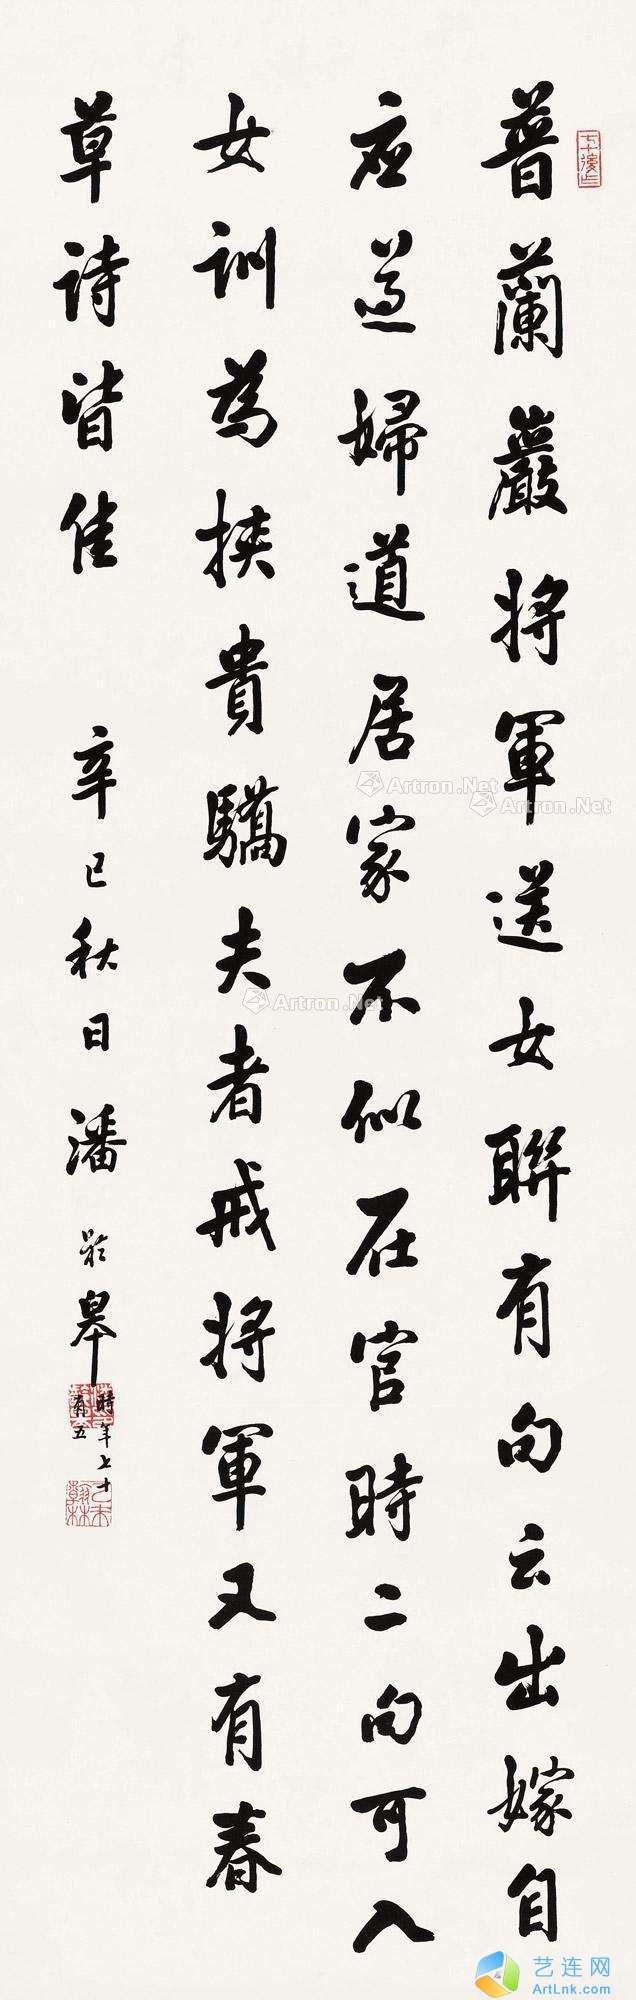 普蘭巖將軍送女聯有句云出嫁自
應遵婦道居家不似在官時二句可入
女訓為挾貴驕夫者戒將軍又有春
草詩皆佳
辛巳秋日潘齡皋
時年七十
有五
乙未
翰林
Artron.Net
Artron.Net
Artron.Net
艺连网
ArtLnk.com